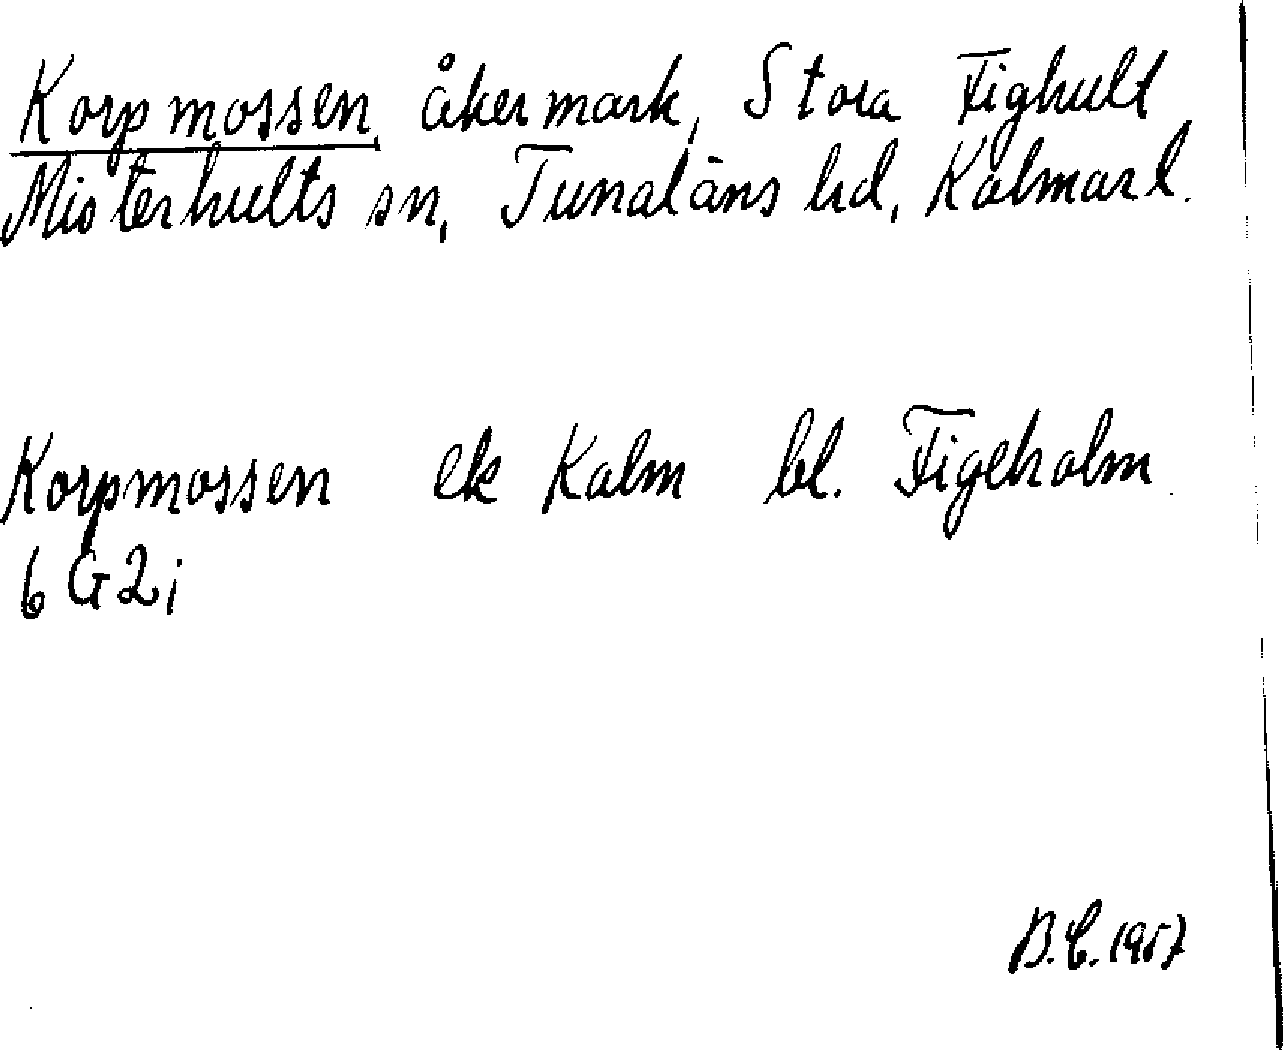 Korpmossen, åkermark, Stora Fighult
Misterhults sn, Tunaläns hd, Kalmar l.
Korpmossen ek Kalm bl. Figeholm
6 G 2 i
B.C. 1957